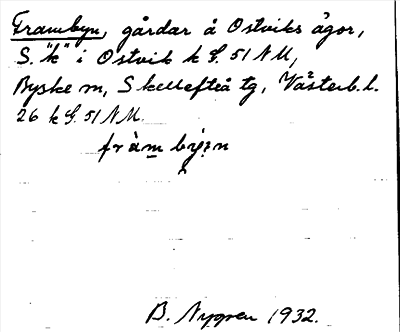 Frambyn, gårdar å Ostviks ägor,
S. "k" i Ostvik k S. 51 NM,
Byske m, Skellefteå tg, Västerb. l.
26 k S. 51 NM.
fràm býn
B. Nygren 1932.